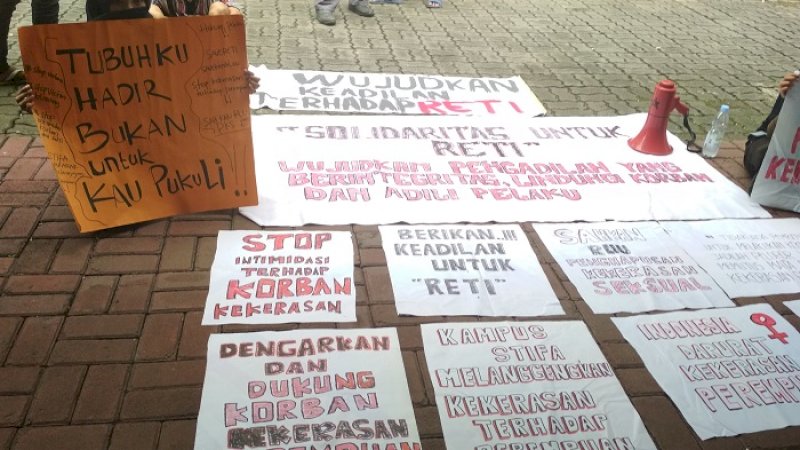 TUBUHKU
HADIR
BUKAN
untuk
KAU PUKULI !!
WUJUDKAN
KEADILAN
TERHADAP RETI
"SOLIDARITAS UNTUK
RETI"
WUJUDKAN PENGADILAN YANG
BERINTEGRITAS, LINDUNGI KORBAN
DAN ADILI PELAKU
STOP
INTIMIDASI
TERHADAP
KORBAN
KEKERASAN
BERIKAN..!!!
KEADILAN
UNTUK
"RETI"
SAHKAN
RUU
PENGHAPUSAN
KEKERASAN
SEKSUAL
DENGARKAN
DAN
DUKUNG
KORBAN
KEKERASAN
KAMPUS
STIFA
MELANGGENGKAN
KEKERASAN
TERHADAP
PEREMPUAN
DARURAT
KEKERASAN